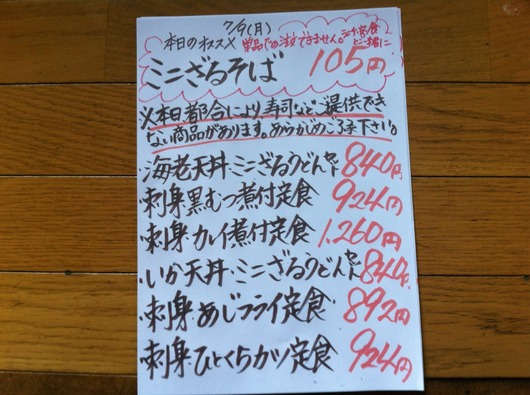 7/9(月)
本日のオススメ 単品での注文できません。ランチ、定食と一緒に
ミニざるそば 105円
※本日都合により、寿司などご提供でき
ない商品があります。あらかじめご了承下さい。
・海老天丼・ミニざるうどんセット 840円
・刺身・黒むつ煮付定食 924円
・刺身・カレイ煮付定食 1,260円
・いか天丼・ミニざるうどんセット 840円
・刺身・あじフライ定食 892円
・刺身・ひとくちカツ定食 924円